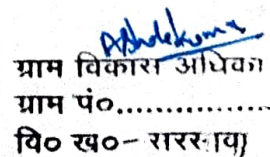 ग्राम विकास अधिका
ग्राम पं०..............
वि० ख०- सरसावा